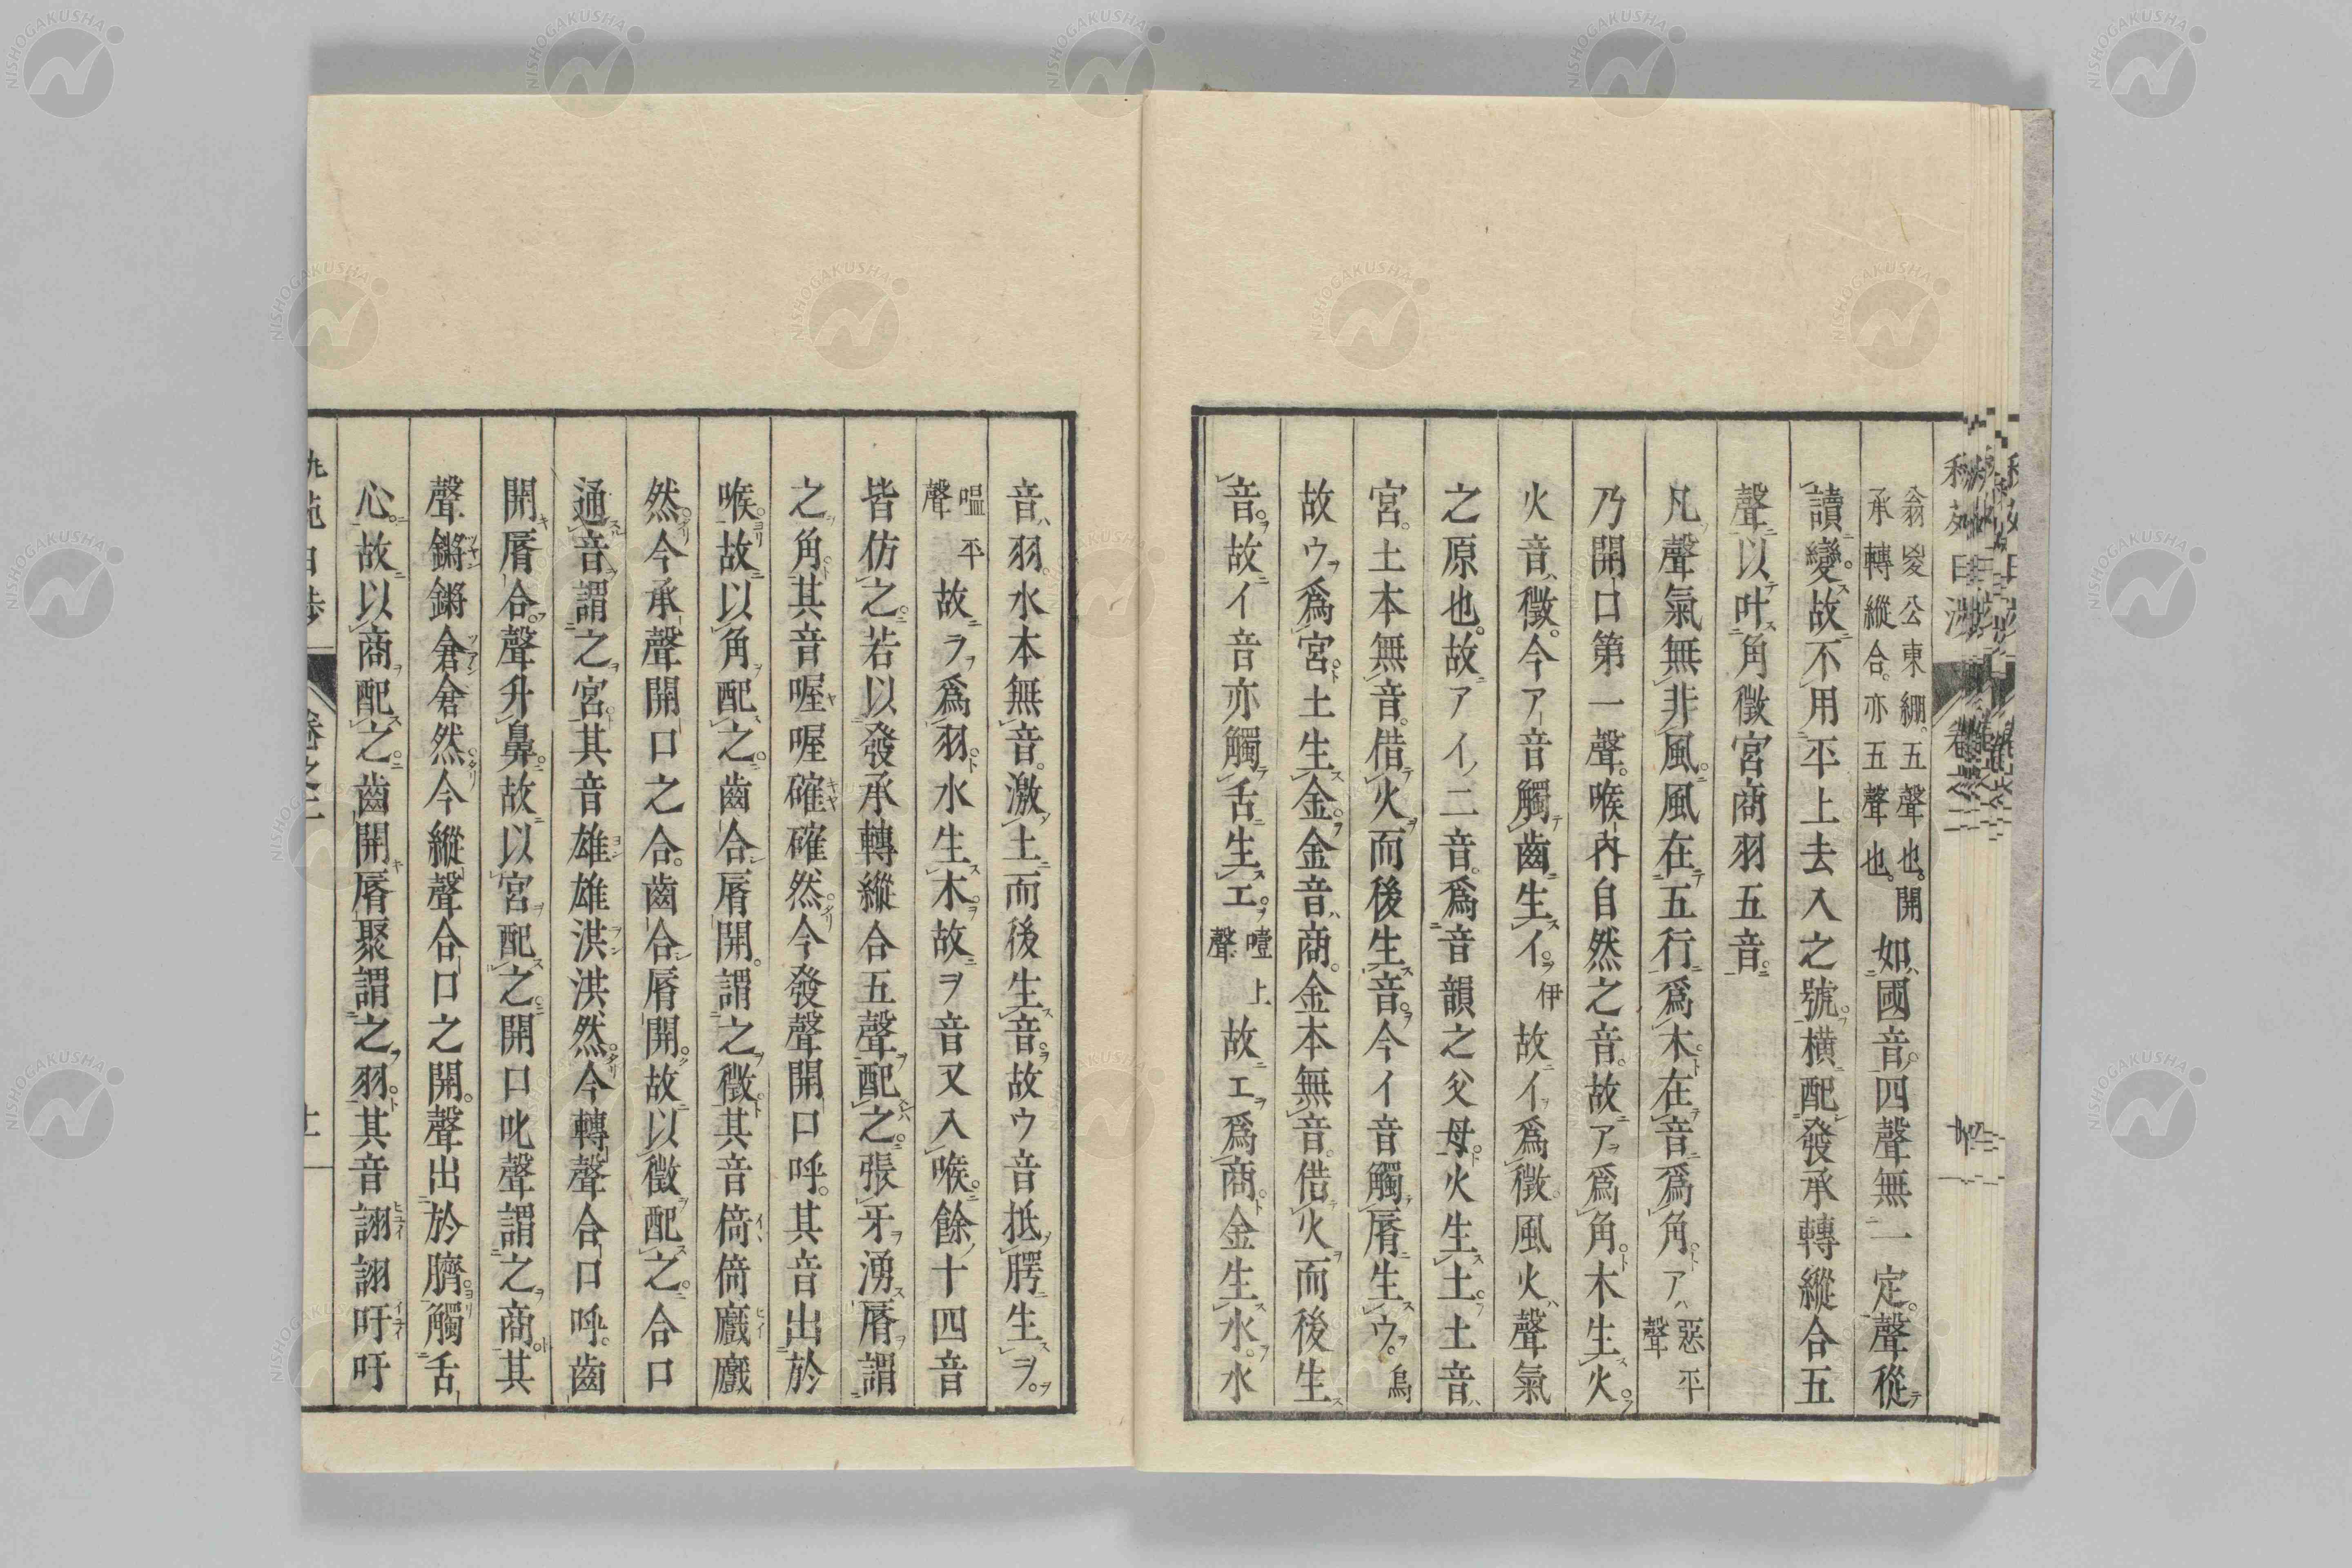 翁㚇公東綳。五聲也。開
承轉縱合。亦五聲也。
如國音。四聲無一定。聲從
讀變。故不用平上去入之號。橫配發承轉縱合五
聲以叶角徵宮商羽五音。
凡聲氣無非風。風在五行爲木。在音爲角。ア惡平聲
乃開口第一聲。喉內自然之音。故ア爲角。木生火。
火音徵。今ア音觸齒生イ。伊故イ爲徵。風火聲氣
之原也。故アイ二音。爲音韻之父母。火生土。土音
宮。土本無音。借火而後生音。今イ音觸脣生ウ。烏
故ウ爲宮。土生金。金音商。金本無音。借火而後生
音。故イ音亦觸舌生エ。噎上聲故エ爲商。金生水。水
音羽。水本無音。激土而後生音。故ウ音抵腭生ヲ。
嗢平聲故ヲ爲羽。水生木。故ヲ音又入喉。餘十四音
皆仿之。若以發承轉縱合五聲配之。張牙湧脣謂
之角。其音喔喔確確然。今發聲開口呼。其音出於
喉。故以角配之。齒合脣開。謂之徵。其音倚倚戲戲
然。今承聲開口之合。齒合脣開。故以徵配之。合口
通音謂之宮。其音雄雄洪洪然。今轉聲合口呼。齒
開脣合。聲升鼻。故以宮配之。開口叱聲謂之商。其
聲鏘鏘倉倉然。今縱聲合口之開。聲出於臍。觸舌
心。故以商配之。齒開脣聚謂之羽。其音詡詡吁吁